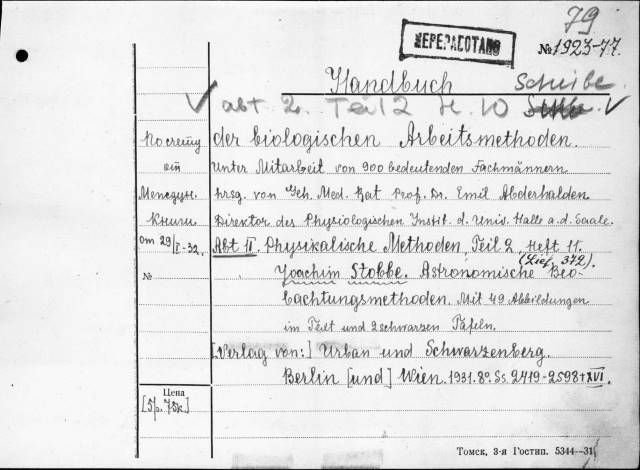 79
ПЕРЕРАБОТАНО
№1923-77.
Handbuch Scheibe.
V abt 2. Teil 2 H. 10 V
По счету der biologischen Arbeitsmethoden.
от unter Mitarbeit von 900 bedeutenden Fachmännern
Междун. hrsg. von Geh. Med. Rat Prof. Dr. Emil Abderhalden
Книги Direktor des Physiologischen Instit. d. Univ. Halle a. d. Saale.
от 29/I-32. Abt II. Physikalische Methoden, Teil 2, Heft 11.
(Lief. 372).
№ Joachim Stobbe. Astronomische Beo-
bachtungsmethoden. Mit 49 Abbildungen
im Text und 2 schwarzen Tafeln.
[Verlag von:] Urban und Schwarzenberg.
Berlin [und] Wien. 1931. 8°. Ss. 2419-2598+XVI.
Цена
[5р. 75к.]
Томск, 3-я Гостип. 5344—31